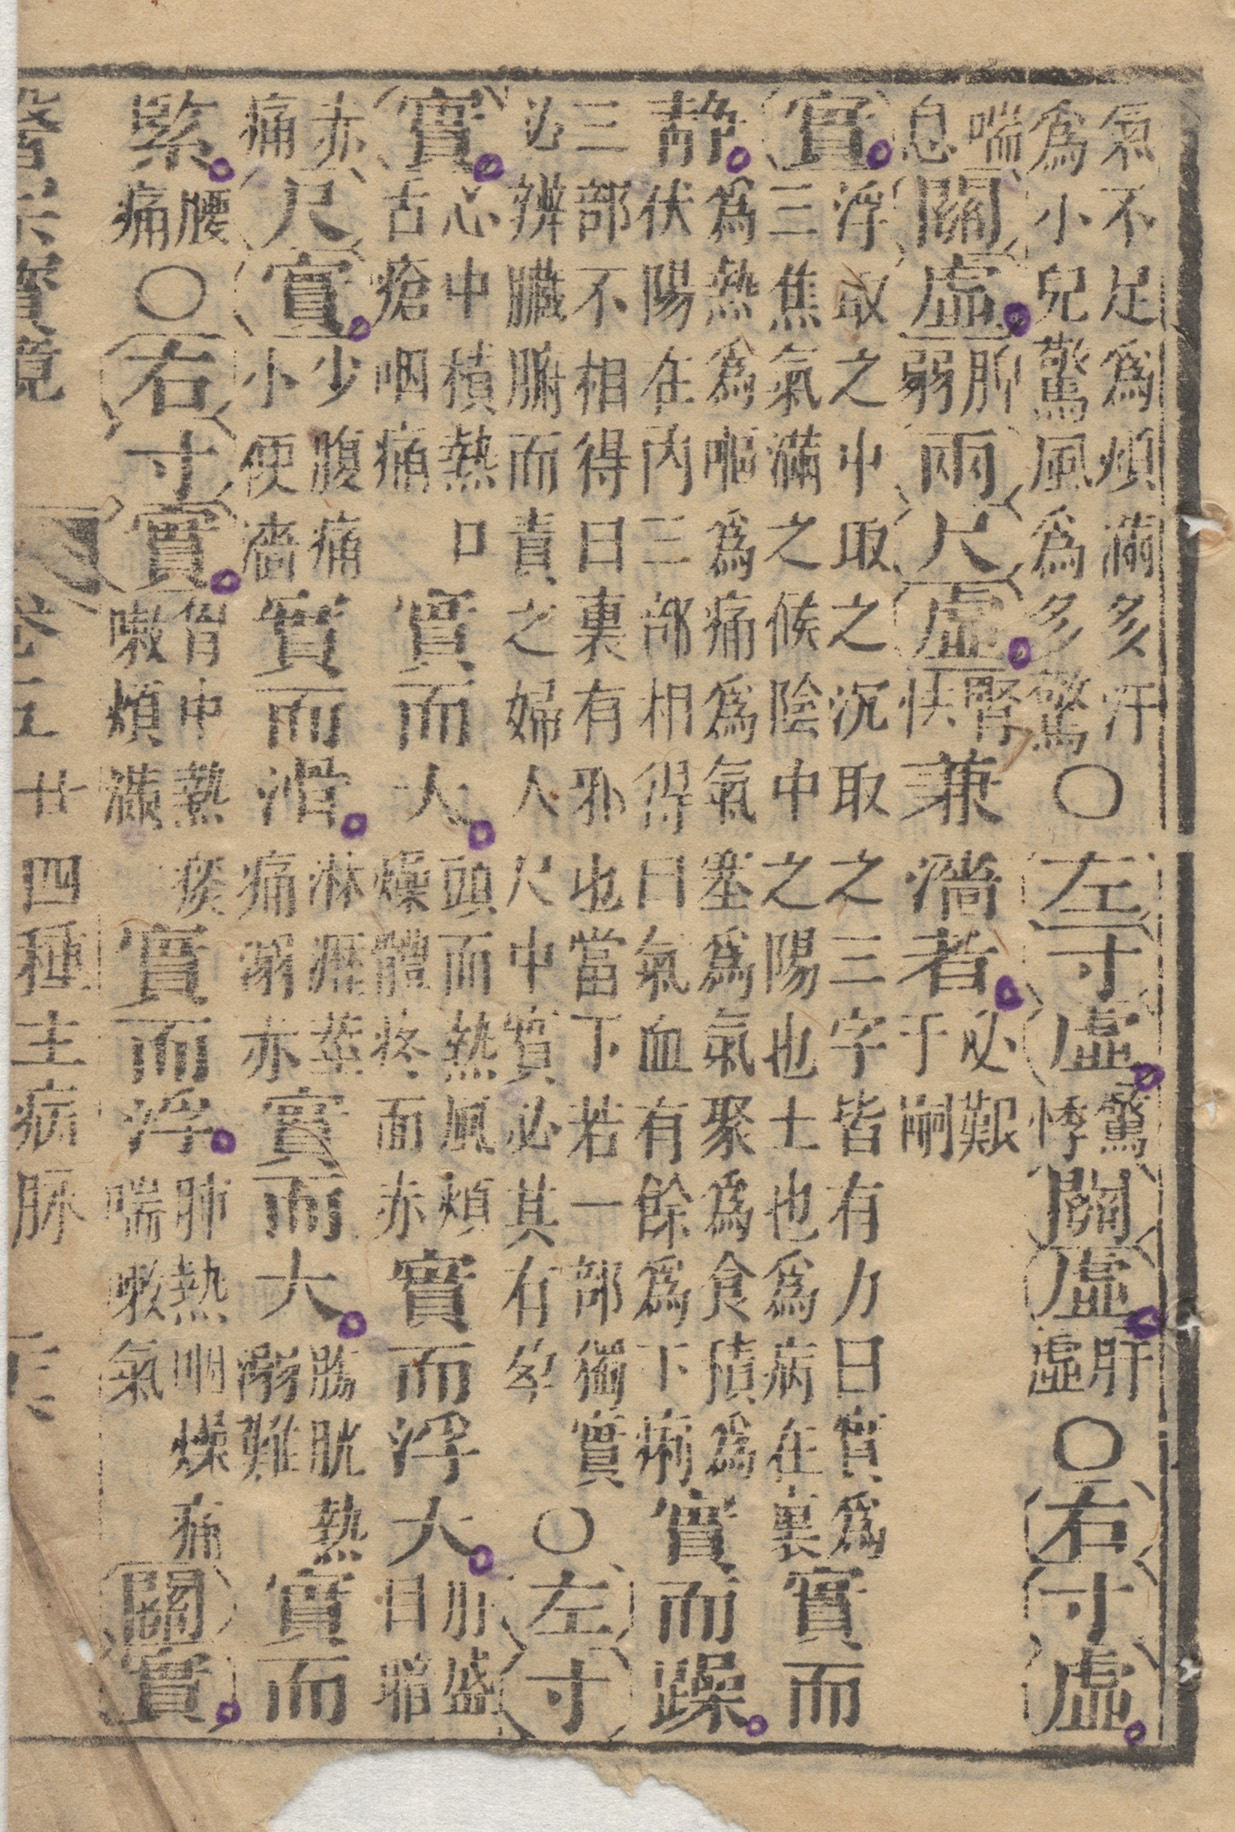 氣不足爲煩滿多汗爲小兒驚風爲多驚○左寸虛驚悸關虛肝虛○右寸虛
喘息關虛脾弱兩尺虛腎怯兼濇者必艱于嗣
實浮取之中取之沉取之三字皆有力曰實爲三焦氣滿之候陰中之陽也土也爲病在裏實而
靜爲熱爲嘔爲痛爲氣塞爲氣聚爲食積爲伏陽在內三部相得曰氣血有餘爲下痢實而躁
三部不相得曰裏有邪也當下若一部獨實必辨臟腑而責之婦人尺中實必其有孕○左寸
實心中積熱口舌瘡咽痛實而大頭面熱風煩燥體疼面赤實而浮大肝盛目暗
赤痛尺實少腹痛小便濇實而滑淋瀝莖痛溺赤實而大膀胱熱溺難實而
緊腰痛○右寸實胷中熱痰嗽煩滿實而浮肺熱咽燥痛喘嗽氣關實
醫宗寶鏡 卷五 廿四種主病脉